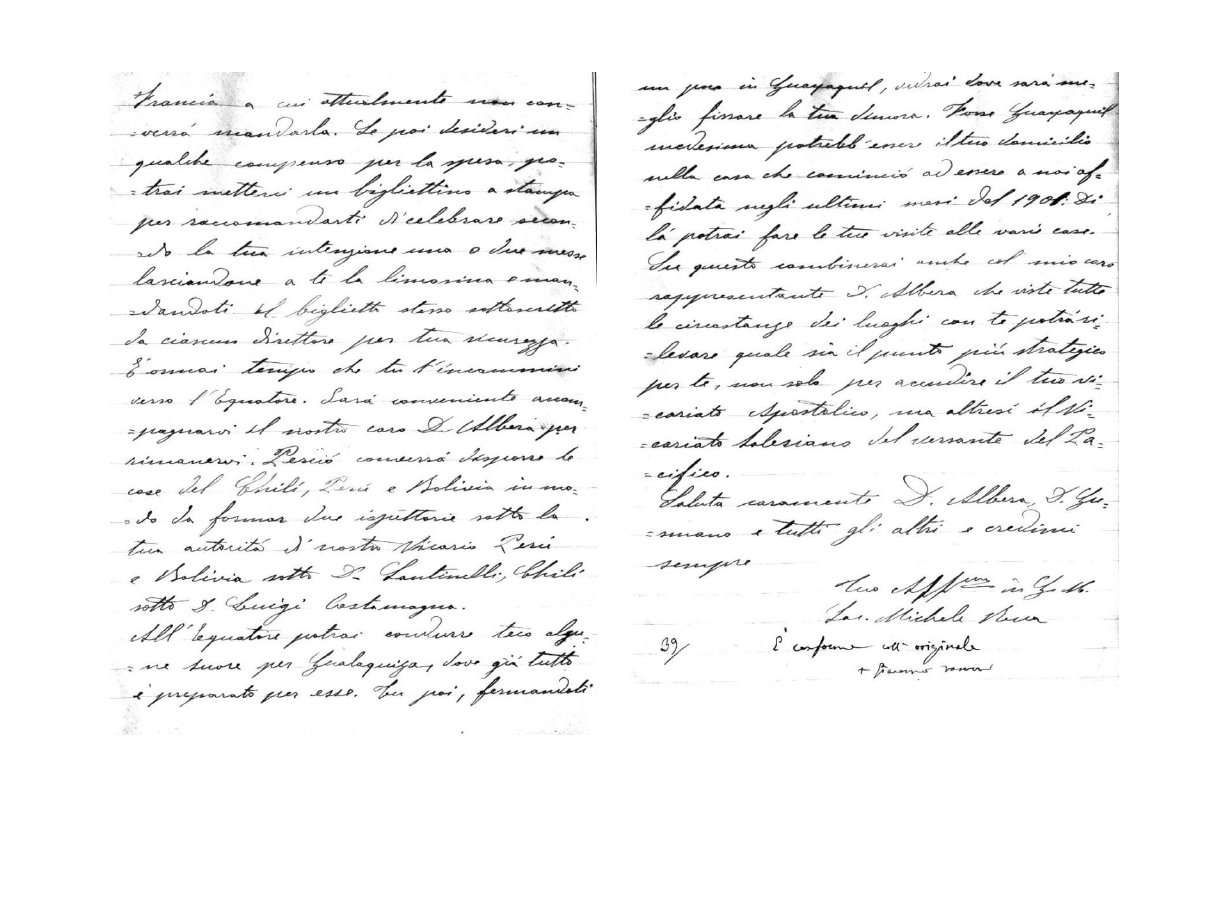 Francia a cui attualmente non con-
=verrà mandarla. Se poi desideri un
qualche compenso per la spesa, po-
=trai metterci un bigliettino a stampa
per raccomandarti di celebrare secon-
=do la tua intenzione una o due messe
lasciandone a te la limosina e man-
=dandoti il biglietto stesso sottoscritto
da ciascun direttore per tua sicurezza.
È ormai tempo che tu t'incammini
verso l'Equatore. Sarà conveniente accom-
=pagnarvi il nostro caro D. Albera per
rimanervi. Perciò converrà disporre le
case del Chilì, Perù e Bolivia in mo-
=do da formar due ispettorie sotto la
tua autorità di nostro Vicario Perù
e Bolivia sotto D. Santinelli, Chilì
sotto D. Luigi Costamagna.
All'Equatore potrai condurre teco alcu-
=ne suore per Gualaquiza, dove già tutto
è preparato per esse. Tu poi, fermandoti
un poco in Guayaquil, vedrai dove sarà me-
=glio fissare la tua dimora. Forse Guayaquil
medesima potrebb'essere il tuo domicilio
nella casa che cominciò ad essere a noi af-
=fidata negli ultimi mesi del 1901. Di
là potrai fare le tue visite alle varie case.
Su questo combinerai anche col mio caro
rappresentante D. Albera che viste tutte
le circostanze dei luoghi con te potrà ri-
=levare quale sia il punto più strategico
per te, non solo per accudire il tuo vi-
=cariato Apostolico, ma altresì il Vi-
=cariato Salesiano del versante del Pa-
=cifico.
Saluta caramente D. Albera, D. Gu-
=smano e tutti gli altri e credimi
sempre
Tuo Aff.mo in G. M.
Sac. Michele Rua
39/ È conforme all'originale
+